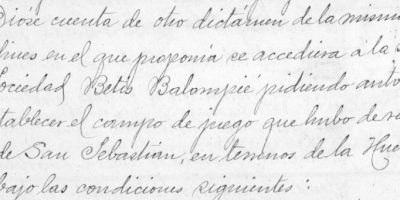 Dióse cuenta de otro dictámen de la mism
hues en el que proponía se accediera a la s
Sociedad Betis Balompié pidiendo auto
tablecer el campo de juego que hubo de re
de San Sebastian, en terrenos de la Hue
bajo las condiciones siguientes: